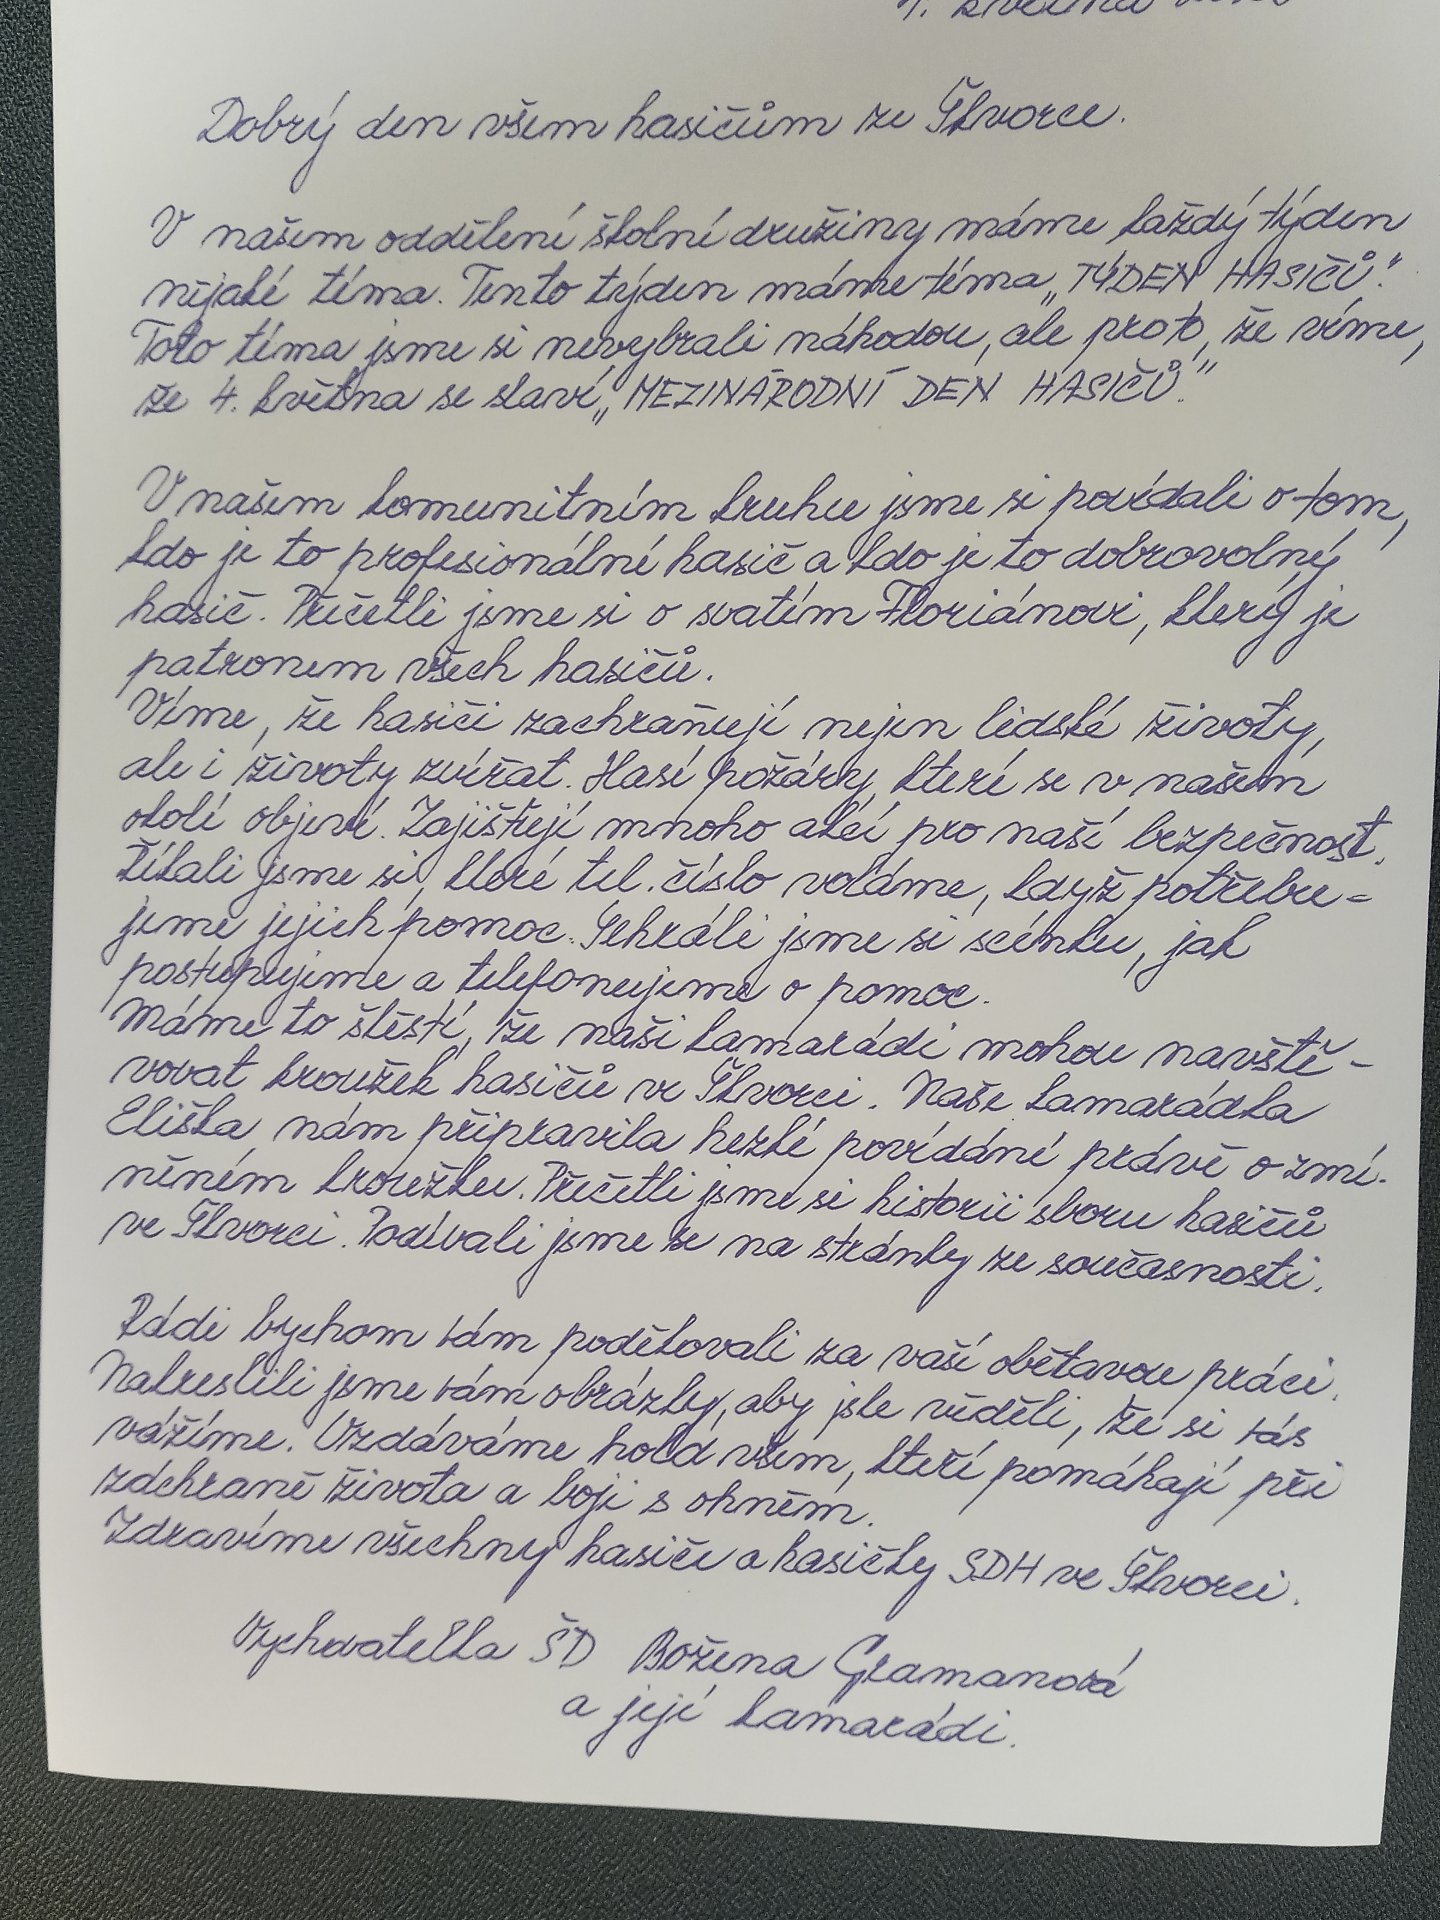 Dobrý den všem hasičům ze Škvorce.
V našem oddělení školní družiny máme každý týden
nějaké téma. Tento týden máme téma „TÝDEN HASIČŮ".
Toto téma jsme si nevybrali náhodou, ale proto, že víme,
že 4. května se slaví „MEZINÁRODNÍ DEN HASIČŮ."
V našem komunitním kruhu jsme si povídali o tom,
kdo je to profesionální hasič a kdo je to dobrovolný
hasič. Přečetli jsme si o svatém Floriánovi, který je
patronem všech hasičů.
Víme, že hasiči zachraňují nejen lidské životy,
ale i životy zvířat. Hasí požáry, které se v našem
okolí objeví. Zajišťují mnoho akcí pro naší bezpečnost.
Říkali jsme si, které tel. číslo voláme, když potřebu=
jeme jejich pomoc. Sehráli jsme si scénku, jak
postupujeme a telefonujeme o pomoc.
Máme to štěstí, že naši kamarádi mohou navště-
vovat kroužek hasičů ve Škvorci. Naše kamarádka
Eliška nám připravila hezké povídání právě o zmí-
něném kroužku. Přečetli jsme si historii sboru hasičů
ve Škvorci. Podívali jsme se na stránky ze současnosti.
Rádi bychom vám poděkovali za vaší obětavou práci.
Nakreslili jsme vám obrázky, aby jste věděli, že si vás
vážíme. Vzdáváme hold všem, kteří pomáhají při
záchraně života a boji s ohněm.
Zdravíme všechny hasiče a hasičky SDH ve Škvorci.
Vychovatelka ŠD Božena Gramanová
a její kamarádi.